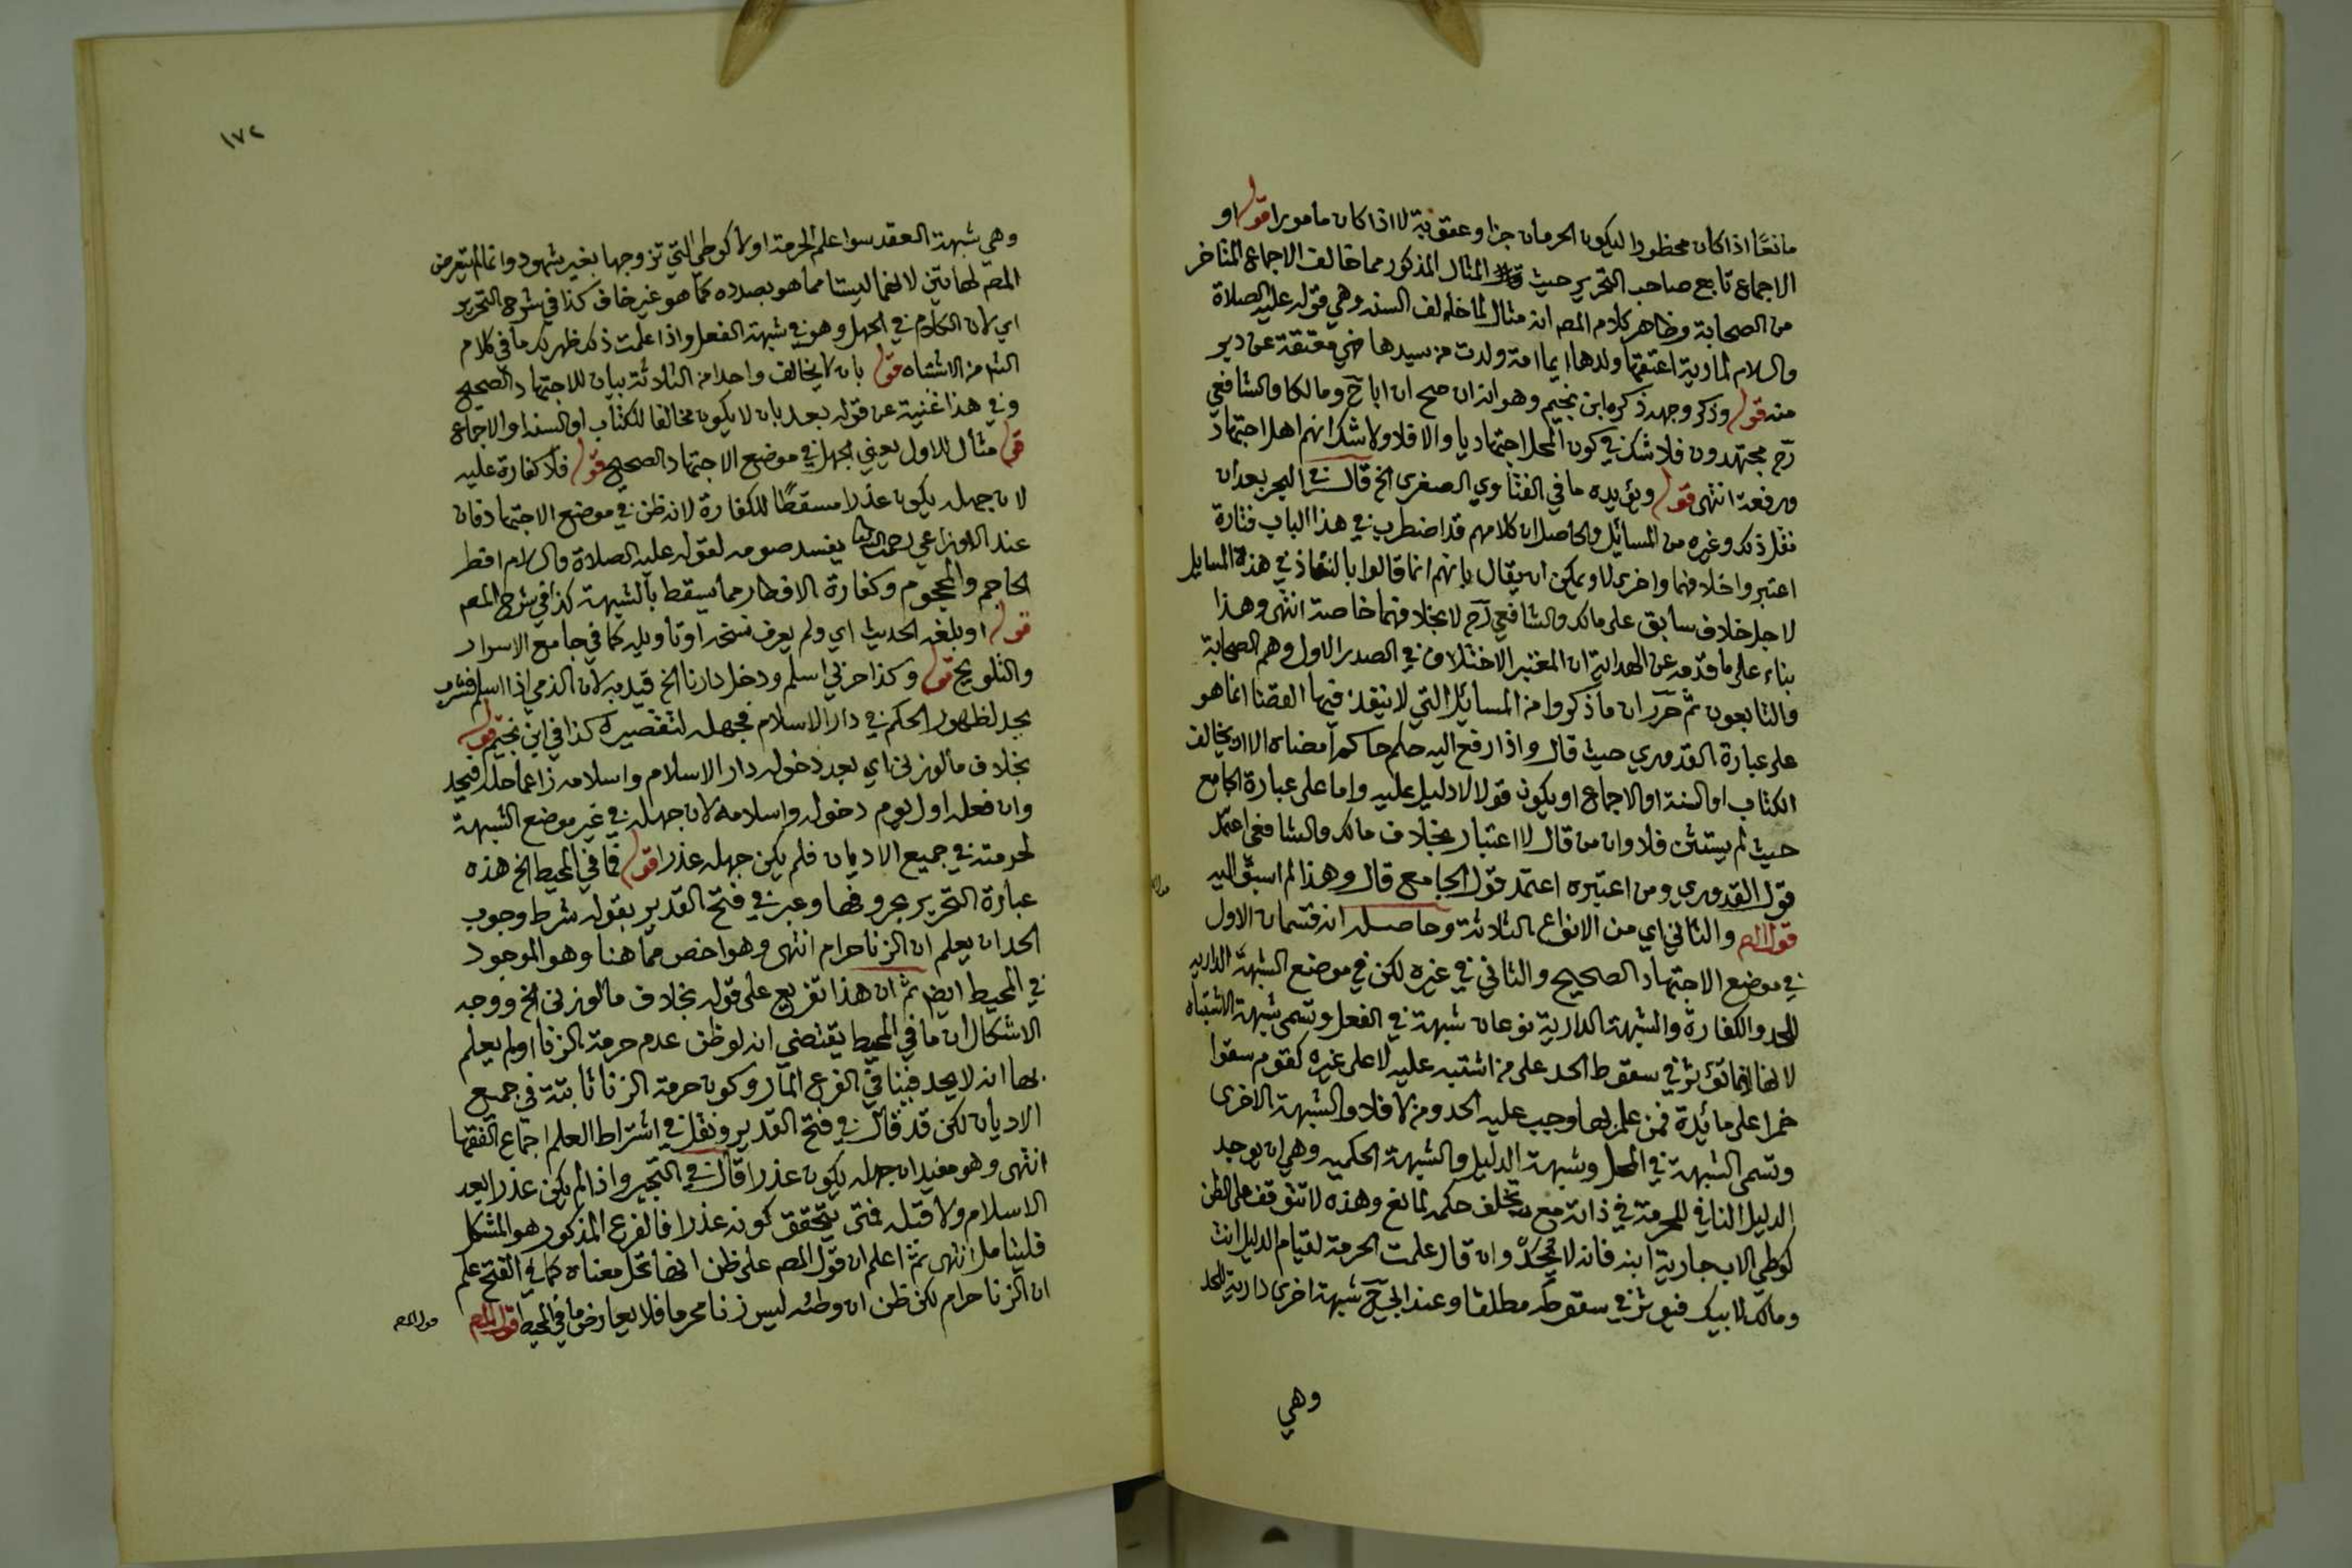 مانعا اذا كان محظورا ليكون الحرمان جزا وعقوبة لا اذا كان مامورا قوله او
الاجماع تابع صاحب التحرير حيث المثال المذكور مما خالف الاجماع المتاخر
من الصحابة وظاهر كلام المص انه مثال لما خالف السنه وهي قوله عليه الصلاة
والسلام لمارية اعتقها ولدها ايما امة ولدت من سيدها فهي معتقة عن دبر
منه قوله وذكر وجهه ذكره ابن نجيم وهو انه ان صح ان ابا ح ومالكا والشافعي
رح مجتهدون فلا شك في كون المحل اجتهاديا والا فلا ولا شك انهم اهل اجتهاد
ورفعة انتهى قوله ويؤيده ما في الفتاوي الصغرى الخ قال في البحر بعد ان
نقل ذلك وغيره من المسائل والحاصل ان كلامهم قد اضطرب في هذا الباب فتارة
اعتبروا خلافهما واخرى لا ويمكن ان يقال بانهم انما قالوا بالنفاذ في هذه المسايل
لاجل خلاف سابق على مالك والشافعي رح لا بخلافهما خاصة انتهى وهذا
بناء على ما قدمه عن الهداية ان المعتبر الاختلاف في الصدر الاول وهم الصحابة
والتابعون ثم حرر ان ما ذكروا من المسائل التي لا ينفذ فيها القضا انما هو
على عبارة القدوري حيث قال واذا رفع اليه حكم حاكم امضاه الا ان يخالف
الكتاب او السنة او الاجماع او يكون قولا لا دليل عليه واما على عبارة الجامع
حيث لم يستثن فلا وان من قال لا اعتبار بخلاف مالك والشافعي اعتمد
قول القدوري ومن اعتبره اعتمد قول الجامع قال وهذا لم اسبق اليه
قول المص والثاني اي من الانواع الثلاثة وحاصله انه قسمان الاول
في موضع الاجتهاد الصحيح والثاني في غيره لكن في موضع الشبهة الداريه
للحد والكفارة والشبهة الدارية نوعان شبهة في الفعل وتسمى شبهة الاشتباه
لانها انما تؤثر في سقوط الحد على من اشتبه عليه لا على غيره كقوم سقوا
خمرا على مائدة فمن علم بها وجب عليه الحد ومن لا فلا والشبهة الاخرى
وتسمى الشبهة في المحل وشبهة الدليل والشبهة الحكميه وهي ان يوجد
الدليل النافي للحرمة في ذاته مع تخلف حكمه لمانع وهذه لا تتوقف على الظن
كوطي الاب جارية ابنه فانه لا يحد وان قال علمت الحرمة لقيام الدليل انت
ومالك لابيك فيؤثر في سقوطه مطلقا وعند ابي ح شبهة اخرى دارية للحد
وهي
١٧٢
وهي شبهة العقد سوا علم الحرمة او لا كوطي التي تزوجها بغير شهود وانما لم يتعرض
المص لهاتين لانهما ليستا مما هو بصدده كما هو غير خاف كذا في شرح التحرير
اي لان الكلام في الجهل وهو في شبهة الفعل واذا علمت ذلك ظهر لك ما في كلام
الش من الاشتباه قوله بان لا يخالف واحدا من الثلاثة بيان للاجتهاد الصحيح
وفي هذا غنية عن قوله بعد بان لا يكون مخالفا للكتاب او السنة او الاجماع
قوله مثال للاول يعني الجهل في موضع الاجتهاد الصحيح قوله فلا كفارة عليه
لان جهله يكون عذرا مسقطا للكفارة لانه ظن في موضع الاجتهاد فان
عند الاوزاعي رحمه الله يفسد صومه لقوله عليه الصلاة والسلام افطر
الحاجم والمحجوم وكفارة الافطار مما يسقط بالشبهة كذا في شرح المص
قوله او بلغه الحديث اي ولم يعرف نسخه او تاويله كما في جامع الاسرار
والتلويح قوله وكذا حربي اسلم ودخل دارنا الخ قيد به لان الذمي اذا اسلم فشرب
يحد لظهور الحكم في دار الاسلام فجهله لتقصيره كذا في ابن نجيم قوله
بخلاف ما لو زنى اي بعد دخوله دار الاسلام واسلامه زاعما حله فيحد
وان فعله اول يوم دخوله واسلامه لان جهله في غير موضع الشبهة
لحرمته في جميع الاديان فلم يكن جهله عذرا قوله فما في المحيط الخ هذه
عبارة التحرير بحروفها وعبر في فتح القدير بقوله شرط وجوب
الحد ان يعلم ان الزنا حرام انتهى وهو اخص مما هنا وهو الموجود
في المحيط ايضا ثم ان هذا تفريع على قوله بخلاف ما لو زنى الخ ووجه
الاشكال ان ما في المحيط يقتضي انه لو ظن عدم حرمة الزنا او لم يعلم
بها انه لا يحد فينافي الفرع المار وكون حرمة الزنا ثابتة في جميع
الاديان لكن قد قال في فتح القدير ونقل في اشتراط العلم اجماع الفقها
انتهى وهو مفيد ان جهله يكون عذرا قال في التحبير واذا لم يكن عذرا بعد
الاسلام ولا قبله فمتى يتحقق كونه عذرا فالفرع المذكور هو المشكل
فليتامل انتهى ثم اعلم ان قول المص على ظن انها تحل معناه كما في الفتح علم
ان الزنا حرام لكن ظن ان وطئه ليس زنا محرما فلا يعارض ما في المحيط قول المص
قول المص